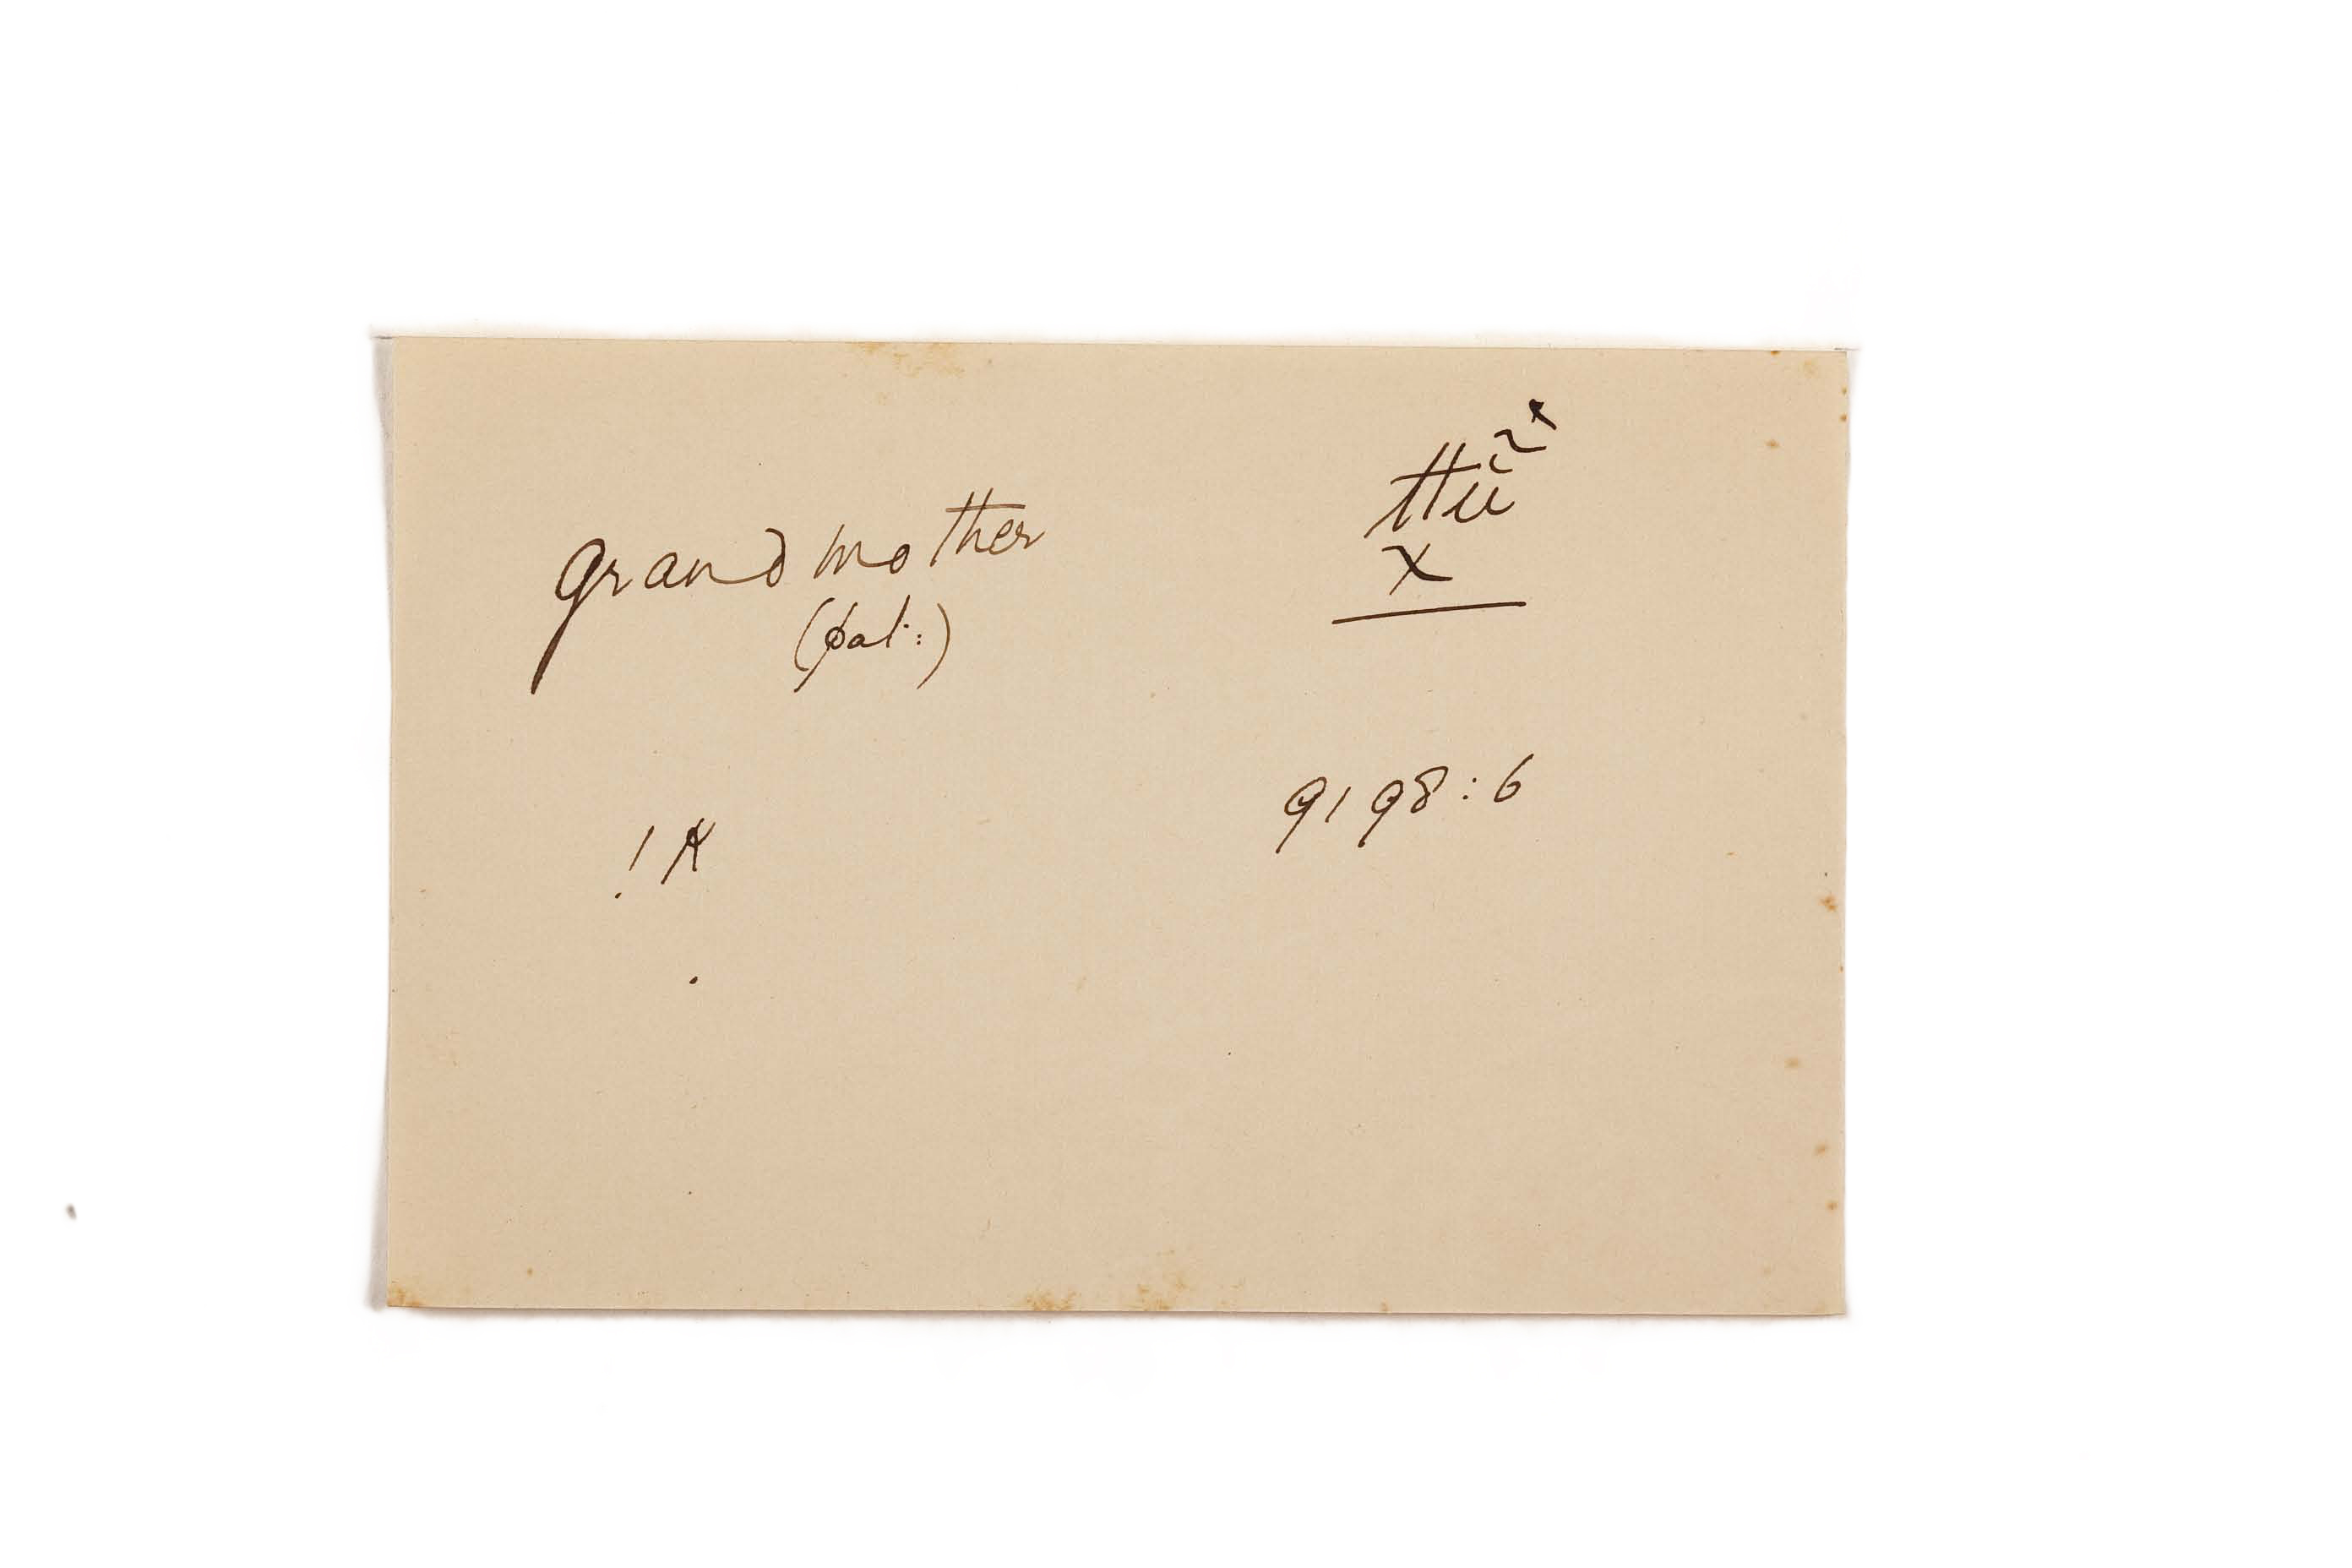 grandmother
(pat:)
!k
9198:6